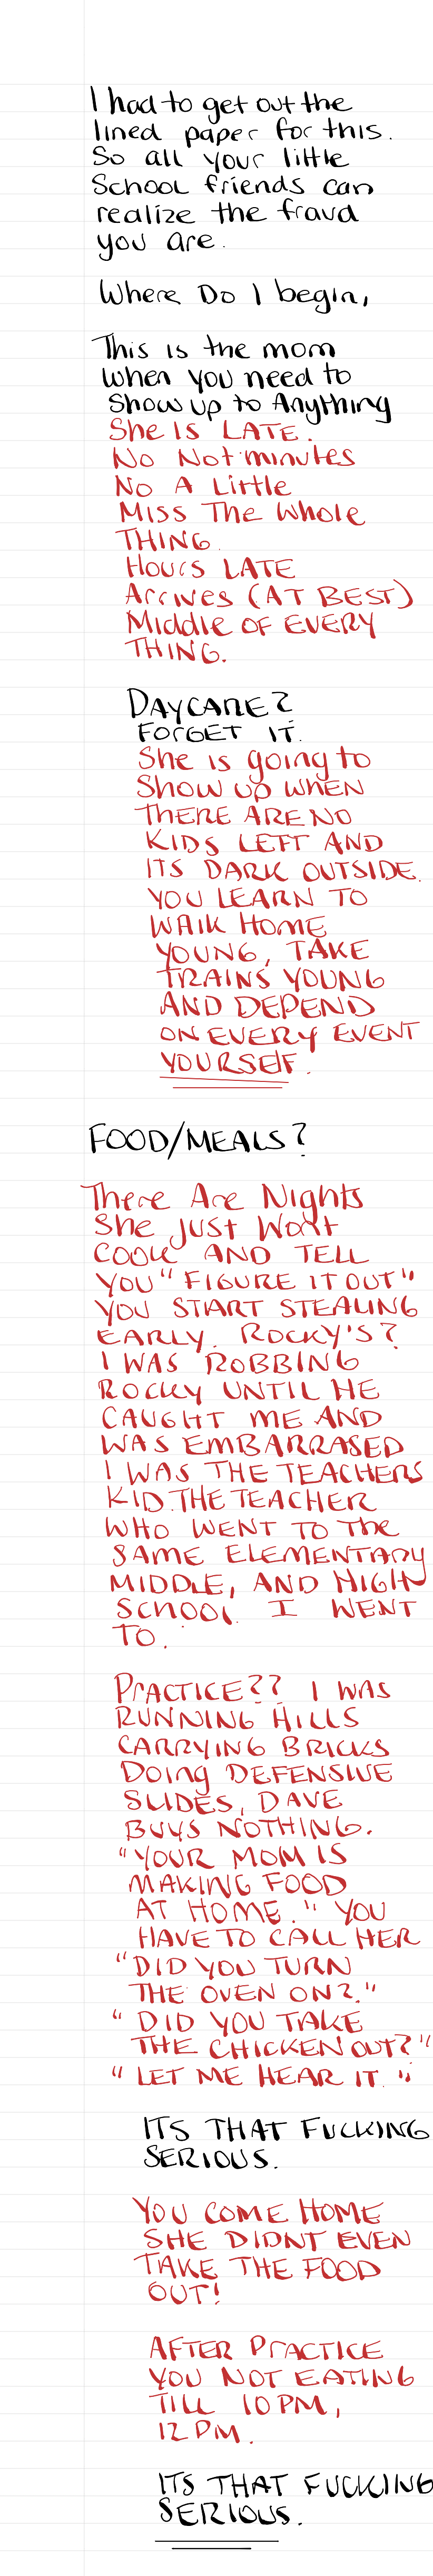 I had to get out the
lined paper for this.
So all your little
School friends can
realize the fraud
you are.
Where Do I begin,
This is the mom
when you need to
Show up to Anything
She Is LATE.
No Not minutes
No A Little
Miss The Whole
THING.
Hours LATE
Arrives (AT BEST)
Middle OF EVERY
THING.
DAYCARE?
FORGET IT.
She is going to
Show up WHEN
THERE ARE NO
KIDS LEFT AND
ITS DARK OUTSIDE.
YOU LEARN TO
WAlK HOME
YOUNG, TAKE
TRAINS YOUNG
AND DEPEND
ON EVERY EVENT
YOURSElF!
FOOD/MEALS?
There Are Nights
She Just Won't
COOK AND TELL
YOU "FIGURE IT OUT"
YOU START STEALING
EARLY. ROCKY'S?
I WAS ROBBING
ROCKY UNTIL HE
CAUGHT ME AND
WAS EMBARRASED
I WAS THE TEACHERS
KID. THE TEACHER
WHO WENT TO The
SAME ELEMENTARY
MIDDLE, AND HIGH
SCHOOL I WENT
TO.
PRACTICE?? I WAS
RUNNING HILLS
CARRYING BRICKS
DOing DEFENSIVE
SLIDES, DAVE
BUYS NOTHING.
"YOUR MOM IS
MAKING FOOD
AT HOME." YOU
HAVE TO CALL HER
"DID YOU TURN
THE OVEN ON?."
"DID YOU TAKE
THE CHICKEN OUT?"
"LET ME HEAR IT."
ITS THAT FUCKING
SERIOUS.
YOU COME HOME
SHE DIDNT EVEN
TAKE THE FOOD
OUT!
AFTER PRACTICE
YOU NOT EATING
TILL 10PM,
12PM.
ITS THAT FUCKING
SERIOUS.